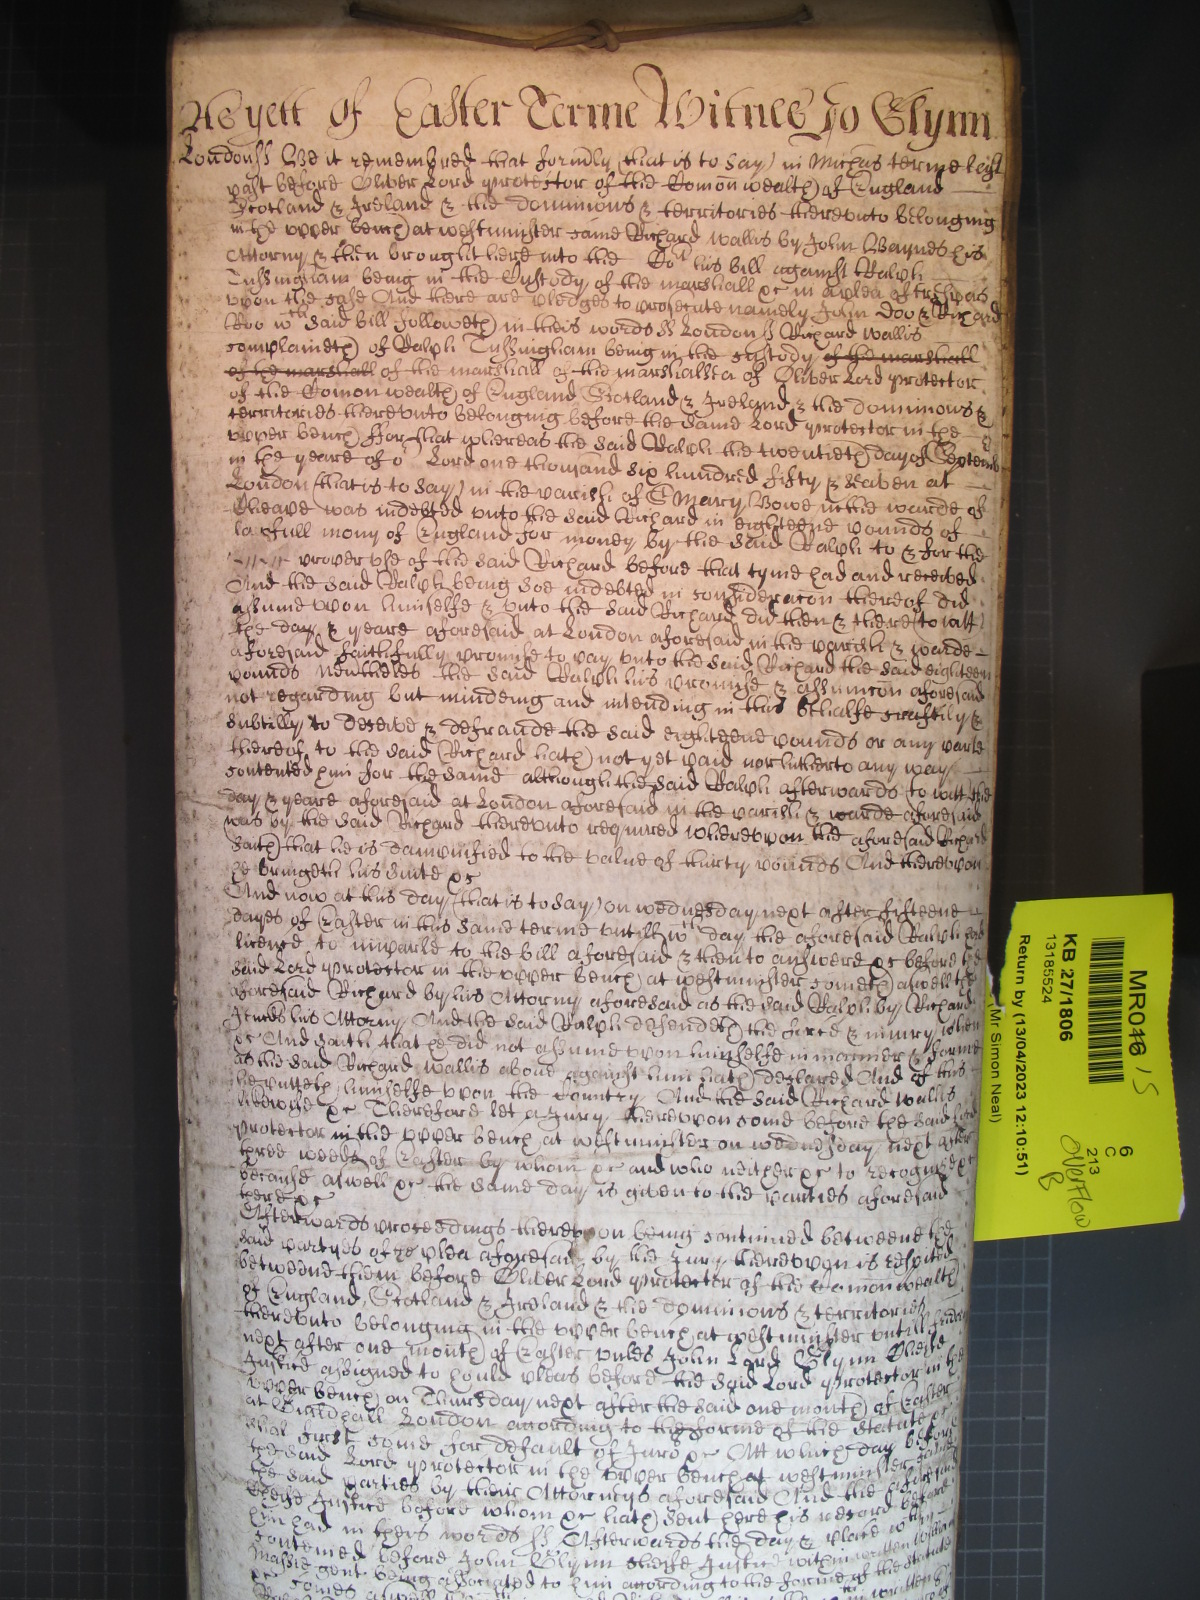 As yett of Easter Terme Witnes Jo Glynn
London ss Be it remembred that formerly (that is to say) in Michas terme last
past before Oliver Lord protector of the Comon wealth of England
Scotland & Ireland & the dominions & territories thereunto belonging
in the upper bench at westminster came Richard wallis by John Baynes his
Attorny & then brought here into the Cot his bill against Ralph
Tussingham being in the Custody of the marshall &c in a plea of trespas
upon the case And there are pledges to prosecute namely John Doo & Richard
Roo wch said bill followeth in theis words ss London ss Richard wallis
complaineth of Ralph Tussingham being in the custody of the marshall
of the marshall of the marshall of the marshallsea of Oliver Lord protector
of the Comon wealth of England Scotland & Ireland & the dominions &
territories thereunto belonging before the same Lord protector in the
upper bench ffor that whereas the said Ralph the twentieth day of Septemb
in the yeare of or Lord one thousand six hundred fifty & seaven at
London (that is to say) in the parish of St Mary Bowe in the warde of
Cheape was indebted unto the said Richard in eighteene pounds of
lafull mony of England for money by the said Ralph to & for the
proper use of the said Richard before that tyme had and received
And the said Ralph being soe indebted in consideracon thereof did
assume upon himselfe & unto the said Richard did then & there (to witt)
the day & yeare aforesaid at London aforesaid in the parish & warde
aforesaid faithfully promise to pay unto the said Richard the said eighteen
pounds Neverthelés the said Ralph his promise & assumcon aforesaid
not regarding but mindeing and intending in this behalfe craftily &
subtilly to deceive & defraude the said eighteene pounds or any parte
thereof to the said Richard hath not yet paid nor hitherto any way
contented him for the same although the said Ralph afterwards to witt the
day & yeare aforesaid at London aforesaid in the parish & warde aforesaid
was by the said Richard thereunto required whereupon the aforesaid Richard
saith that he is dampnified to the value of thirty pounds And thereupon
he bringeth his suite &c
And now at this day (that is to say) on wednesday next after fifteene
dayes of Easter in this same terme untill wch day the aforesaid Ralph had
licence to imparle to the bill aforesaid & then to answere &c before the
said Lord protector in the upper bench at westminster cometh aswell the
aforesaid Richard by his Attorny aforesaid as the said Ralph by Richard
his Attorny And the said Ralph defendeth the force & iniury when
&c And saith that he did not assume upon himselfe in manner & forme
as the said Richard wallis above against him hath declared And of this
he putteth himselfe upon the Country And the said Richard wallis
likewise &c Therefore let a Jury thereupon come before the said Lord
protector in the upper bench at westminster on wednesday next after
three weeks of Easter by whom &c and who neither &c to recognize &c
because aswell &c the same day is given to the parties aforesaid
there &c
Afterwards proceedings thereupon being continued betweene the
said partyes of the plea aforesaid by the Jury thereupon is respited
betweene them before Oliver Lord protector of the Comon wealth
of England Scotland & Ireland & the dominions & territories
thereunto belonging in the upper bench at westminster untill
next after one month of Easter unles John Lord Glynn Cheife
Justice assigned to hould pleas before the said Lord protector in the
upper bench on Thursday next after the said one month of Easter
at Guildhall London according to the forme of the statute &c
shal first come for default of Juros &c Att which day before
the said Lord protector in the upper bench at westminster came
the said parties by their Attornys aforesaid And the aforesaid
Cheife Justice before whom &c hath sent here his record before
him had in theis words ss Afterwards the day & place within
contened before John Glynn cheife Justice within written William
Massie gent being associated to him according to the forme of the statute
&c comes aswell
MR046
15
KB 27/1806
13185524
Return by (13/04/2023 12:10:51)
(Mr Simon Neal)
6
C
213
Overflow
B